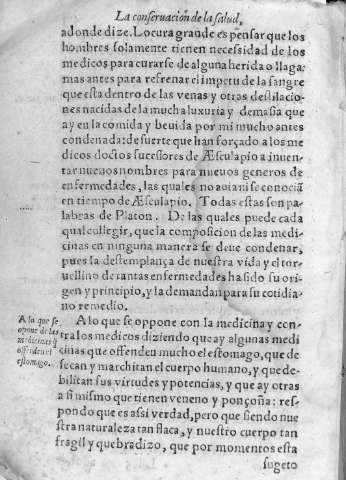 La conseruacion de la salud,
adonde dize. Locura grande es pensar que los
hombres solamente tienen necessidad de los
medicos para curarse de alguna herida o llaga
mas antes para refrenar el impetu de la sangre
que esta dentro de las venas y otras destilacio
nes nacidas de la mucha luxuria y demasia que
ay en la comida y beuida por mi mucho antes
condenada: de suerte que han forçado a los me
dicos doctos sucessores de Æsculapio a inuen
tar nueuos nombres para nueuos generos de
enfermedades, las quales no auia ni se conociã
en tiempo de Æsculapio. Todas estas son pa-
labras de Platon. De las quales puede cada
qual collegir, que la composicion de las medi-
cinas en ninguna manera se deue condenar,
pues la destemplança de nuestra vida y el tor-
uellino de tantas enfermedades ha sido su ori-
gen y principio, y la demandan para su cotidia
no remedio.
A lo que se
opone de las
medicinas q̃
offendẽ el
estomago.
A lo que se oppone con la medicina y con-
tra los medicos diziendo que ay algunas medi
cinas que offenden mucho el estomago, que de
secan y marchitan el cuerpo humano, y que de-
bilitan sus virtudes y potencias, y que ay otras
a si mismo que tienen veneno y ponçoña: res-
pondo que es assi verdad, pero que siendo nue
stra naturaleza tan flaca, y nuestro cuerpo tan
fragil y quebradizo, que por momentos esta
sugeto